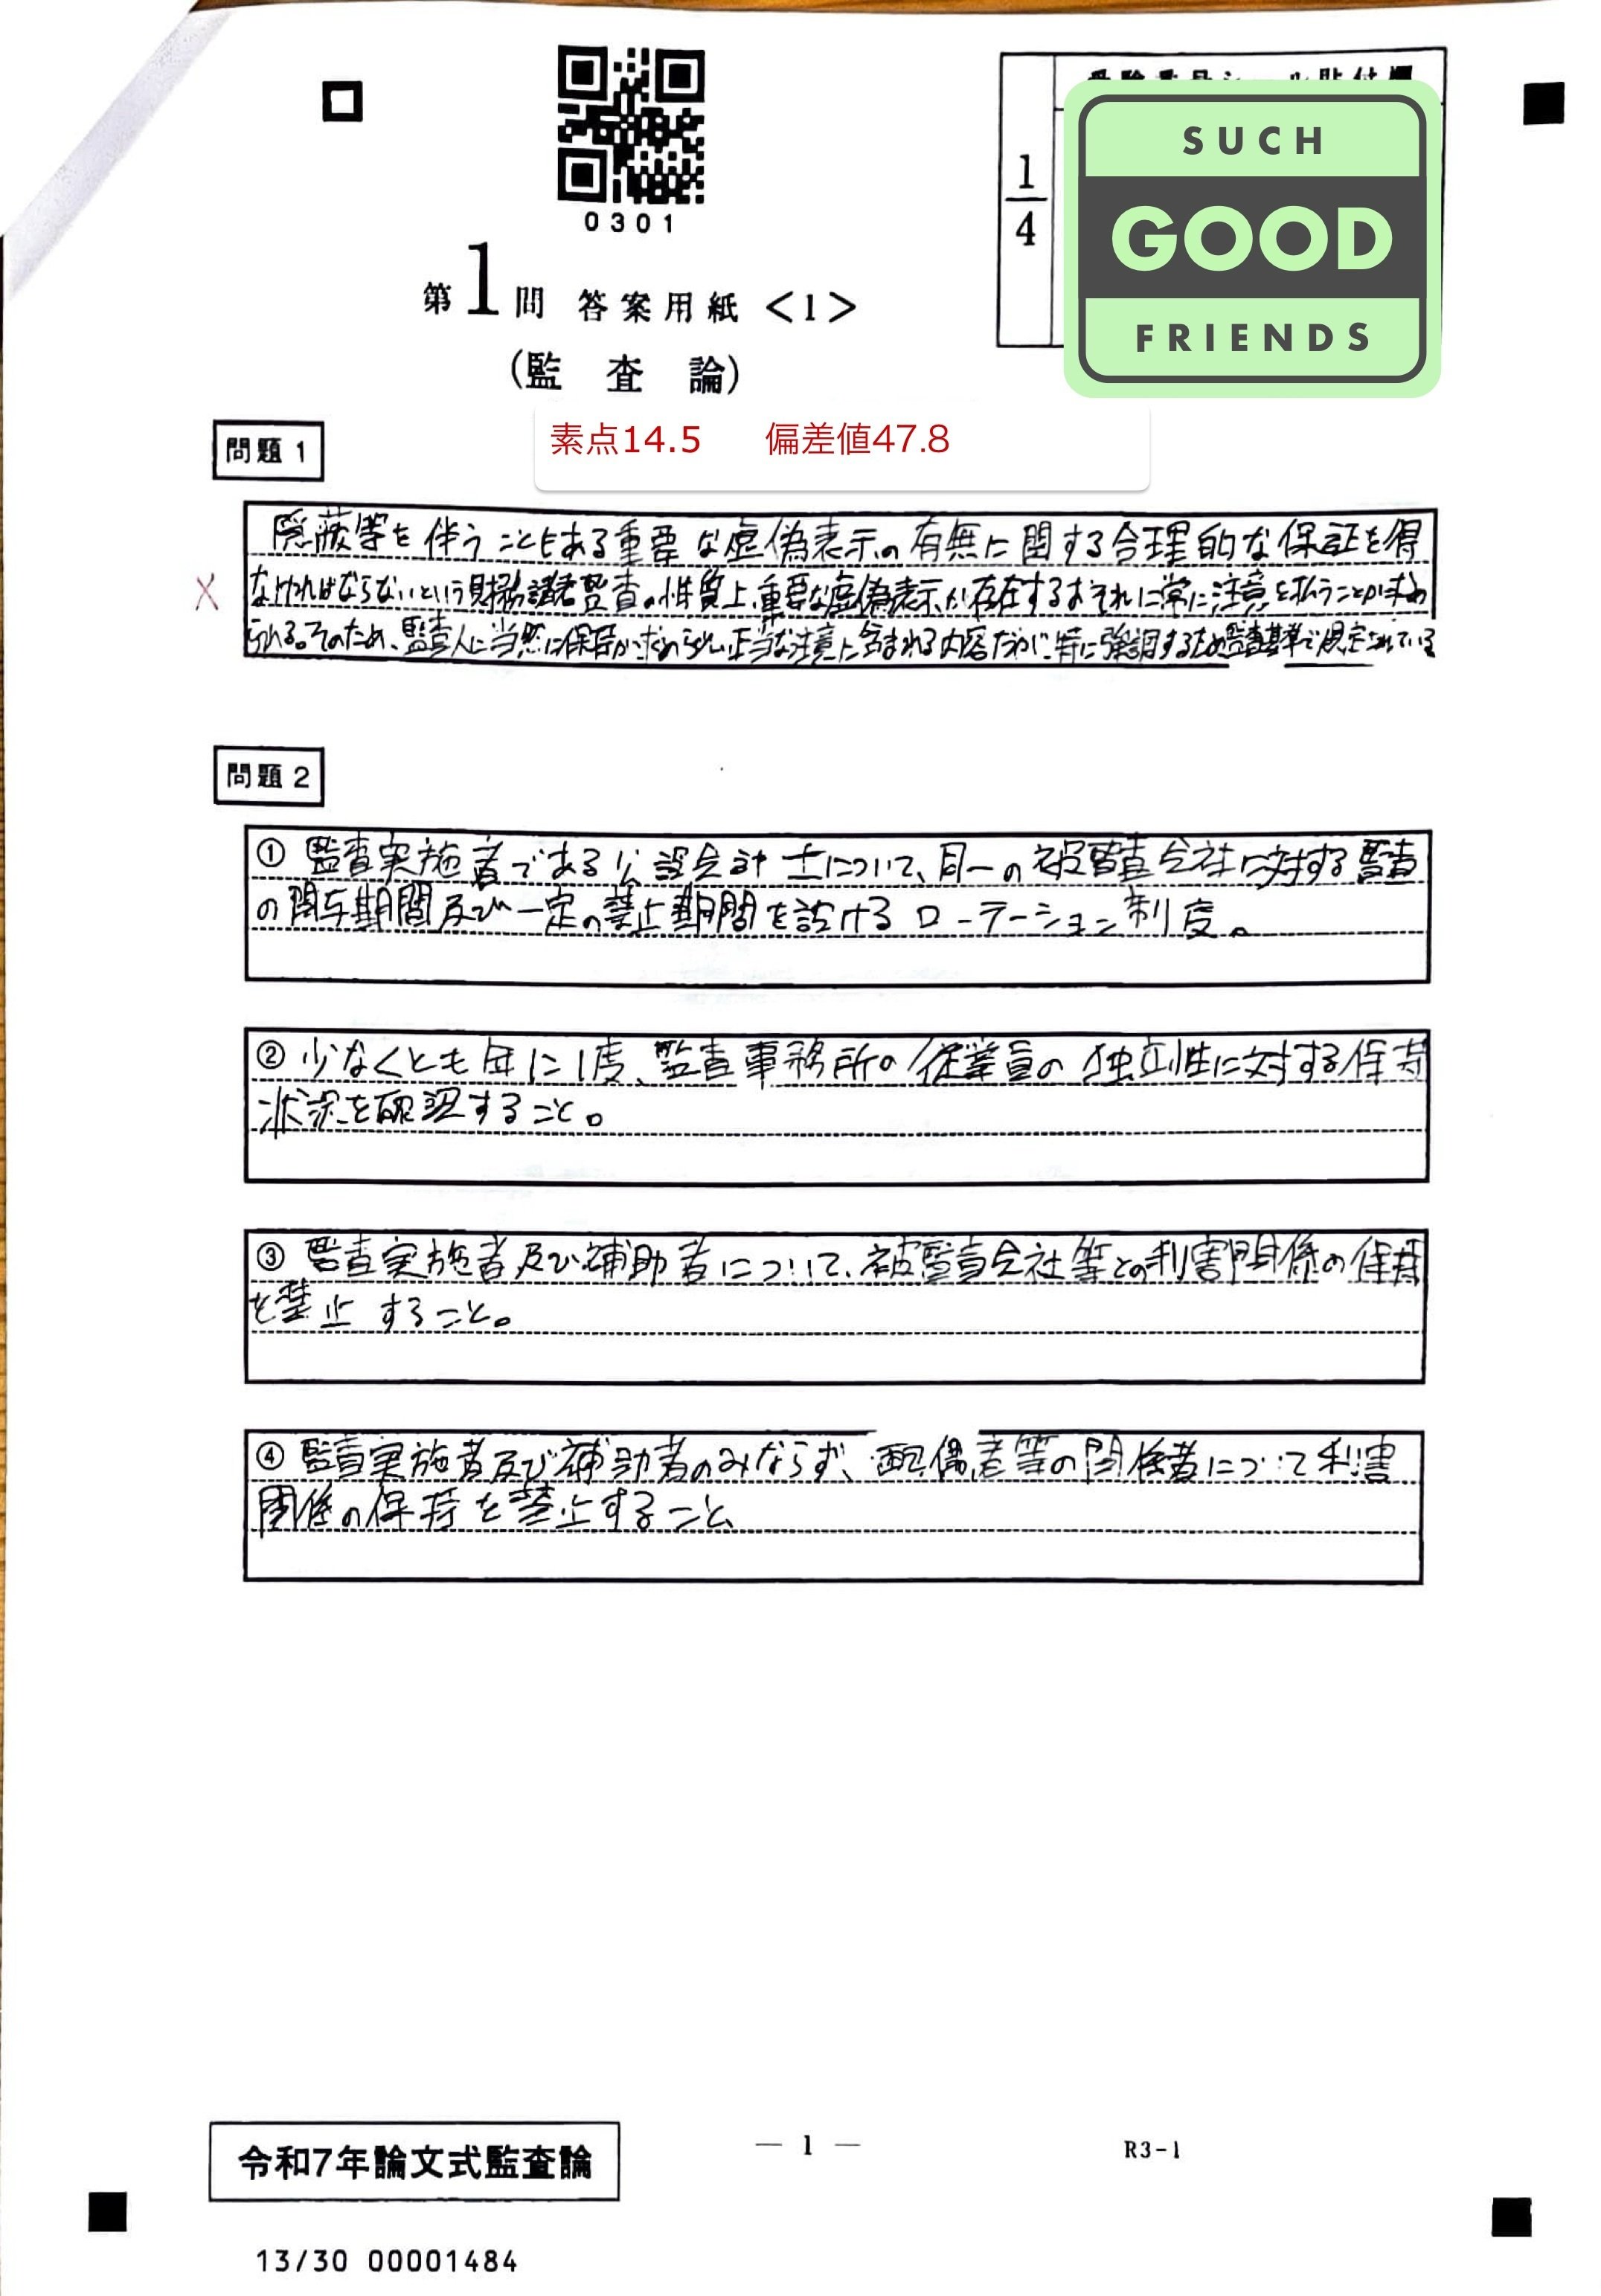 0301
1
4
SUCH
GOOD
FRIENDS
第1問 答案用紙<1>
(監査論)
素点14.5 偏差値47.8
問題1
隠蔽等を伴うこともある重要な虚偽表示の有無に関する合理的な保証を得
なければならないという財務諸表監査の性質上、重要な虚偽表示が存在するおそれに常に注意を払うことが求め
られる。そのため、監査人に当然に保持が求められる正当な注意に含まれる内容だが、特に強調するため監査基準で規定されている
問題2
① 監査実施者である公認会計士について、同一の被監査会社に対する監査
の関与期間及び一定の禁止期間を設けるローテーション制度。
② 少なくとも年に1度、監査事務所の従業員の独立性に対する保持
状況を確認すること。
③ 監査実施者及び補助者について、被監査会社等との利害関係の保持
を禁止すること。
④ 監査実施者及び補助者のみならず、配偶者等の関係者について利害
関係の保持を禁止すること
令和7年論文式監査論
— 1 —
R3-1
13/30 00001484